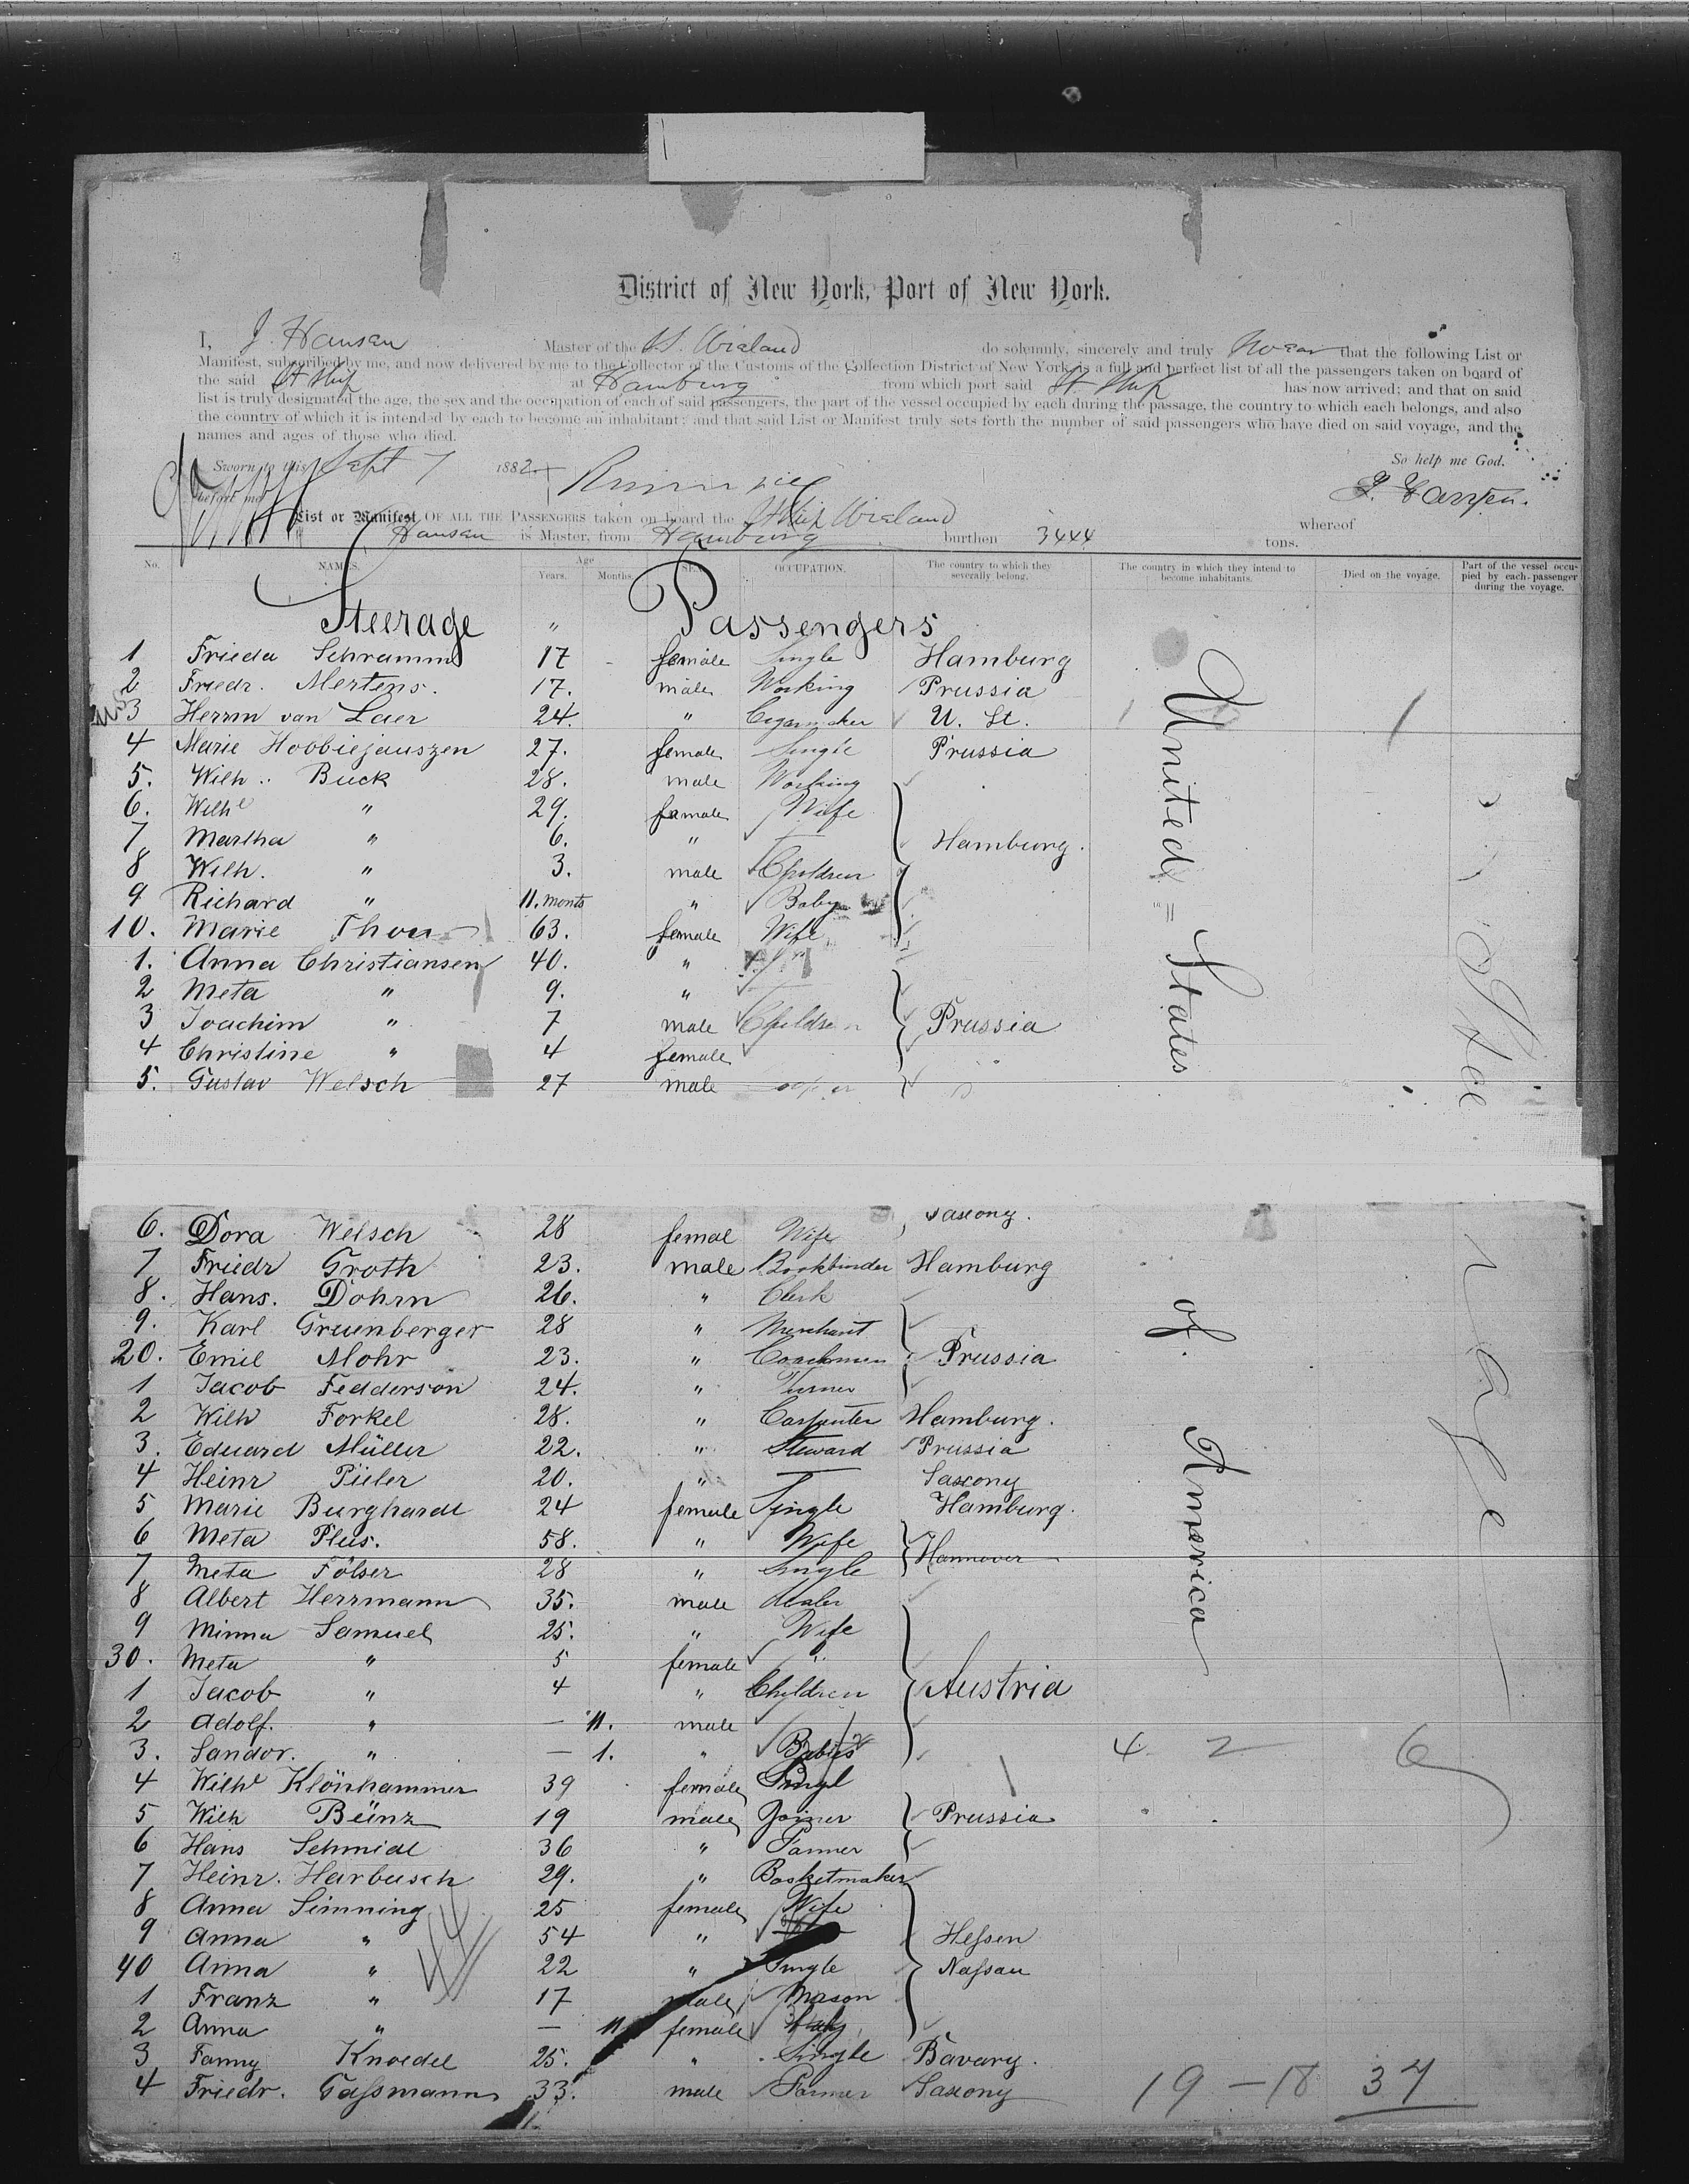 District of New York, Port of New York.
I, J. Hansen Master of the Wieland do solemnly, sincerely and truly that the following List or
Manifest, subscribed by me, and now delivered by me to the Collector of the Customs of the Collection District of New York, is a full and perfect list of all the passengers taken on board of
the said St Ship at Hamburg from which port said St Ship has now arrived; and that on said
list is truly designated the age, the sex and the occupation of each of said passengers, the part of the vessel occupied by each during the passage, the country to which each belongs, and also
the country of which it is intended by each to become an inhabitant; and that said List or Manifest truly sets forth the number of said passengers who have died on said voyage, and the
names and ages of those who died.
Sworn to this Sept 7 1882 So help me God.
before me
List or Manifest OF ALL THE PASSENGERS taken on board the St Ship Wieland whereof
Hansen is Master, from Hamburg burthen 3444 tons.
No. NAMES. Age Years. Months. SEX. OCCUPATION. The country to which they severally belong. The country in which they intend to become inhabitants. Died on the voyage. Part of the vessel occupied by each passenger during the voyage.
Steerage " Passengers
1 Frieda Schramm 17 - female Single Hamburg
2 Friedr. Mertens. 17. male Working Prussia
3 Herm van Laer 24. " Cigarmaker U. St.
4 Marie Hobbiejauszen 27. female Single Prussia
5. Wilh. Buck 28. male Working
6. Wilhe " 29. female Wife
7 Martha " 6. " Hamburg.
8 Wilh. " 3. male Children
9 Richard " 11. monts " Baby
10. Marie 63. female Wife
1. Anna Christiansen 40. "
2 Meta " 9. "
3 Joachim " 7 male Children Prussia
4 Christine " 4 female
5. Gustav Welsch 27 male
6. Dora Welsch 28 femal Wife Saxony.
7 Friedr Groth 23. male Bookbinder Hamburg
8. Hans. Dohrn 26. " Clerk
9. Karl Gruenberger 28 " Merchant
20. Emil Mohr 23. " Coachmen Prussia
1 Jacob Fedderson 24. " Turner
2 Wilh Forkel 28. " Carpenter Hamburg.
3. Eduard Müller 22. " Steward Prussia
4 Heinr Püler 20. " — Saxony
5 Marie Burghardt 24 female Single Hamburg.
6 Meta Plus. 58. " Wife Hannover
7 Meta Fölser 28 " Single
8 Albert Herrmann 35. male dealer
9 Minna Samuel 25. " Wife
30. Meta " 5 female "
1 Jacob " 4 " Children Austria
2 Adolf. " — 11. male
3. Sandor. " — 1. " Babies 4 2 6
4 Wilhe Klönhammer 39 female Singl
5 Wilh Bünz 19 male Joiner Prussia
6 Hans Schmidt 36 " Farmer
7 Heinr. Harbusch 29. " Basketmaker
8 Anna Simning 25 female Wife
9 Anna " 54 " Hessen
40 Anna " 22 " Single Nassau
1 Franz " 17 male Mason
2 Anna " — 11 female Baby
3 Fanny Knoedel 25. " Single Bavary.
4 Friedr. Gassmann 33. male Farmer Saxony 19 - 18 37
United = States of America